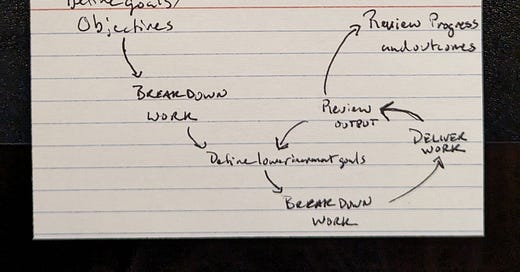 Define goals/
Objectives
BREAKDOWN
WORK
Define lower increment goals
BREAKDOWN
WORK
DELIVER
WORK
Review
OUTPUT
Review Progress
and outcomes